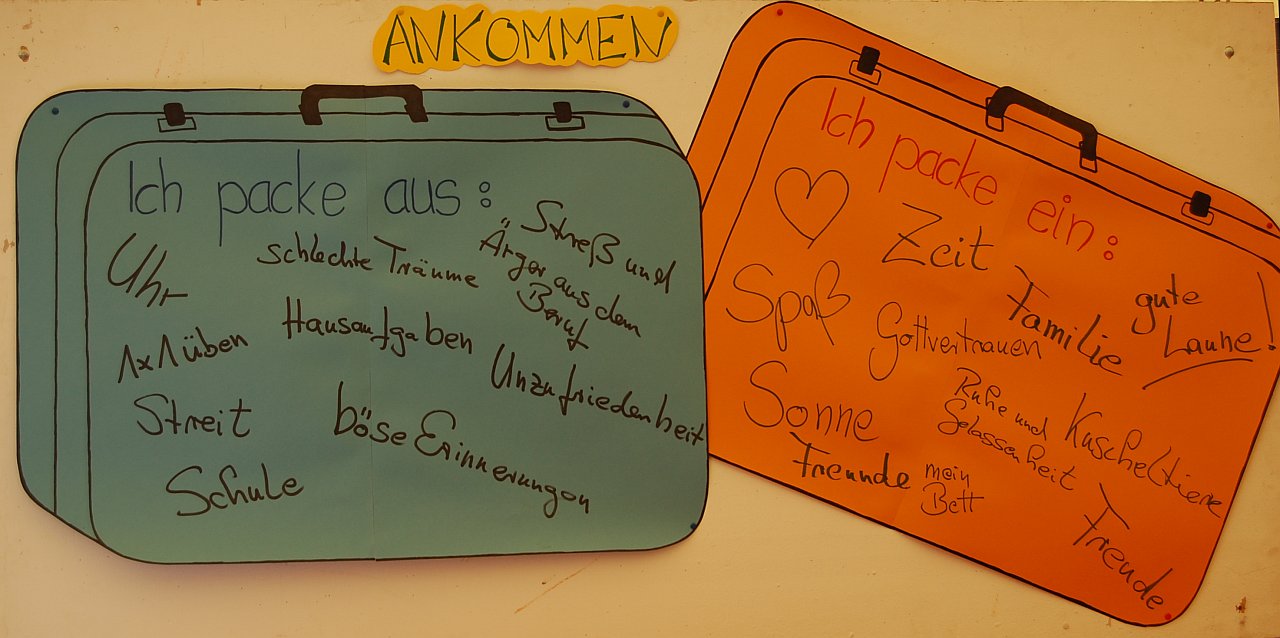 ANKOMMEN
Ich packe aus:
Uhr
schlechte Träume
Streß und
Ärger aus dem
Beruf
1x1 üben
Hausaufgaben
Unzufriedenheit
Streit
böse Erinnerungen
Schule
Ich packe ein:
Zeit
Spaß
Gottvertrauen
Familie
gute
Laune!
Sonne
Ruhe und
Gelassenheit
Kuscheltiere
Freunde
mein
Bett
Freude